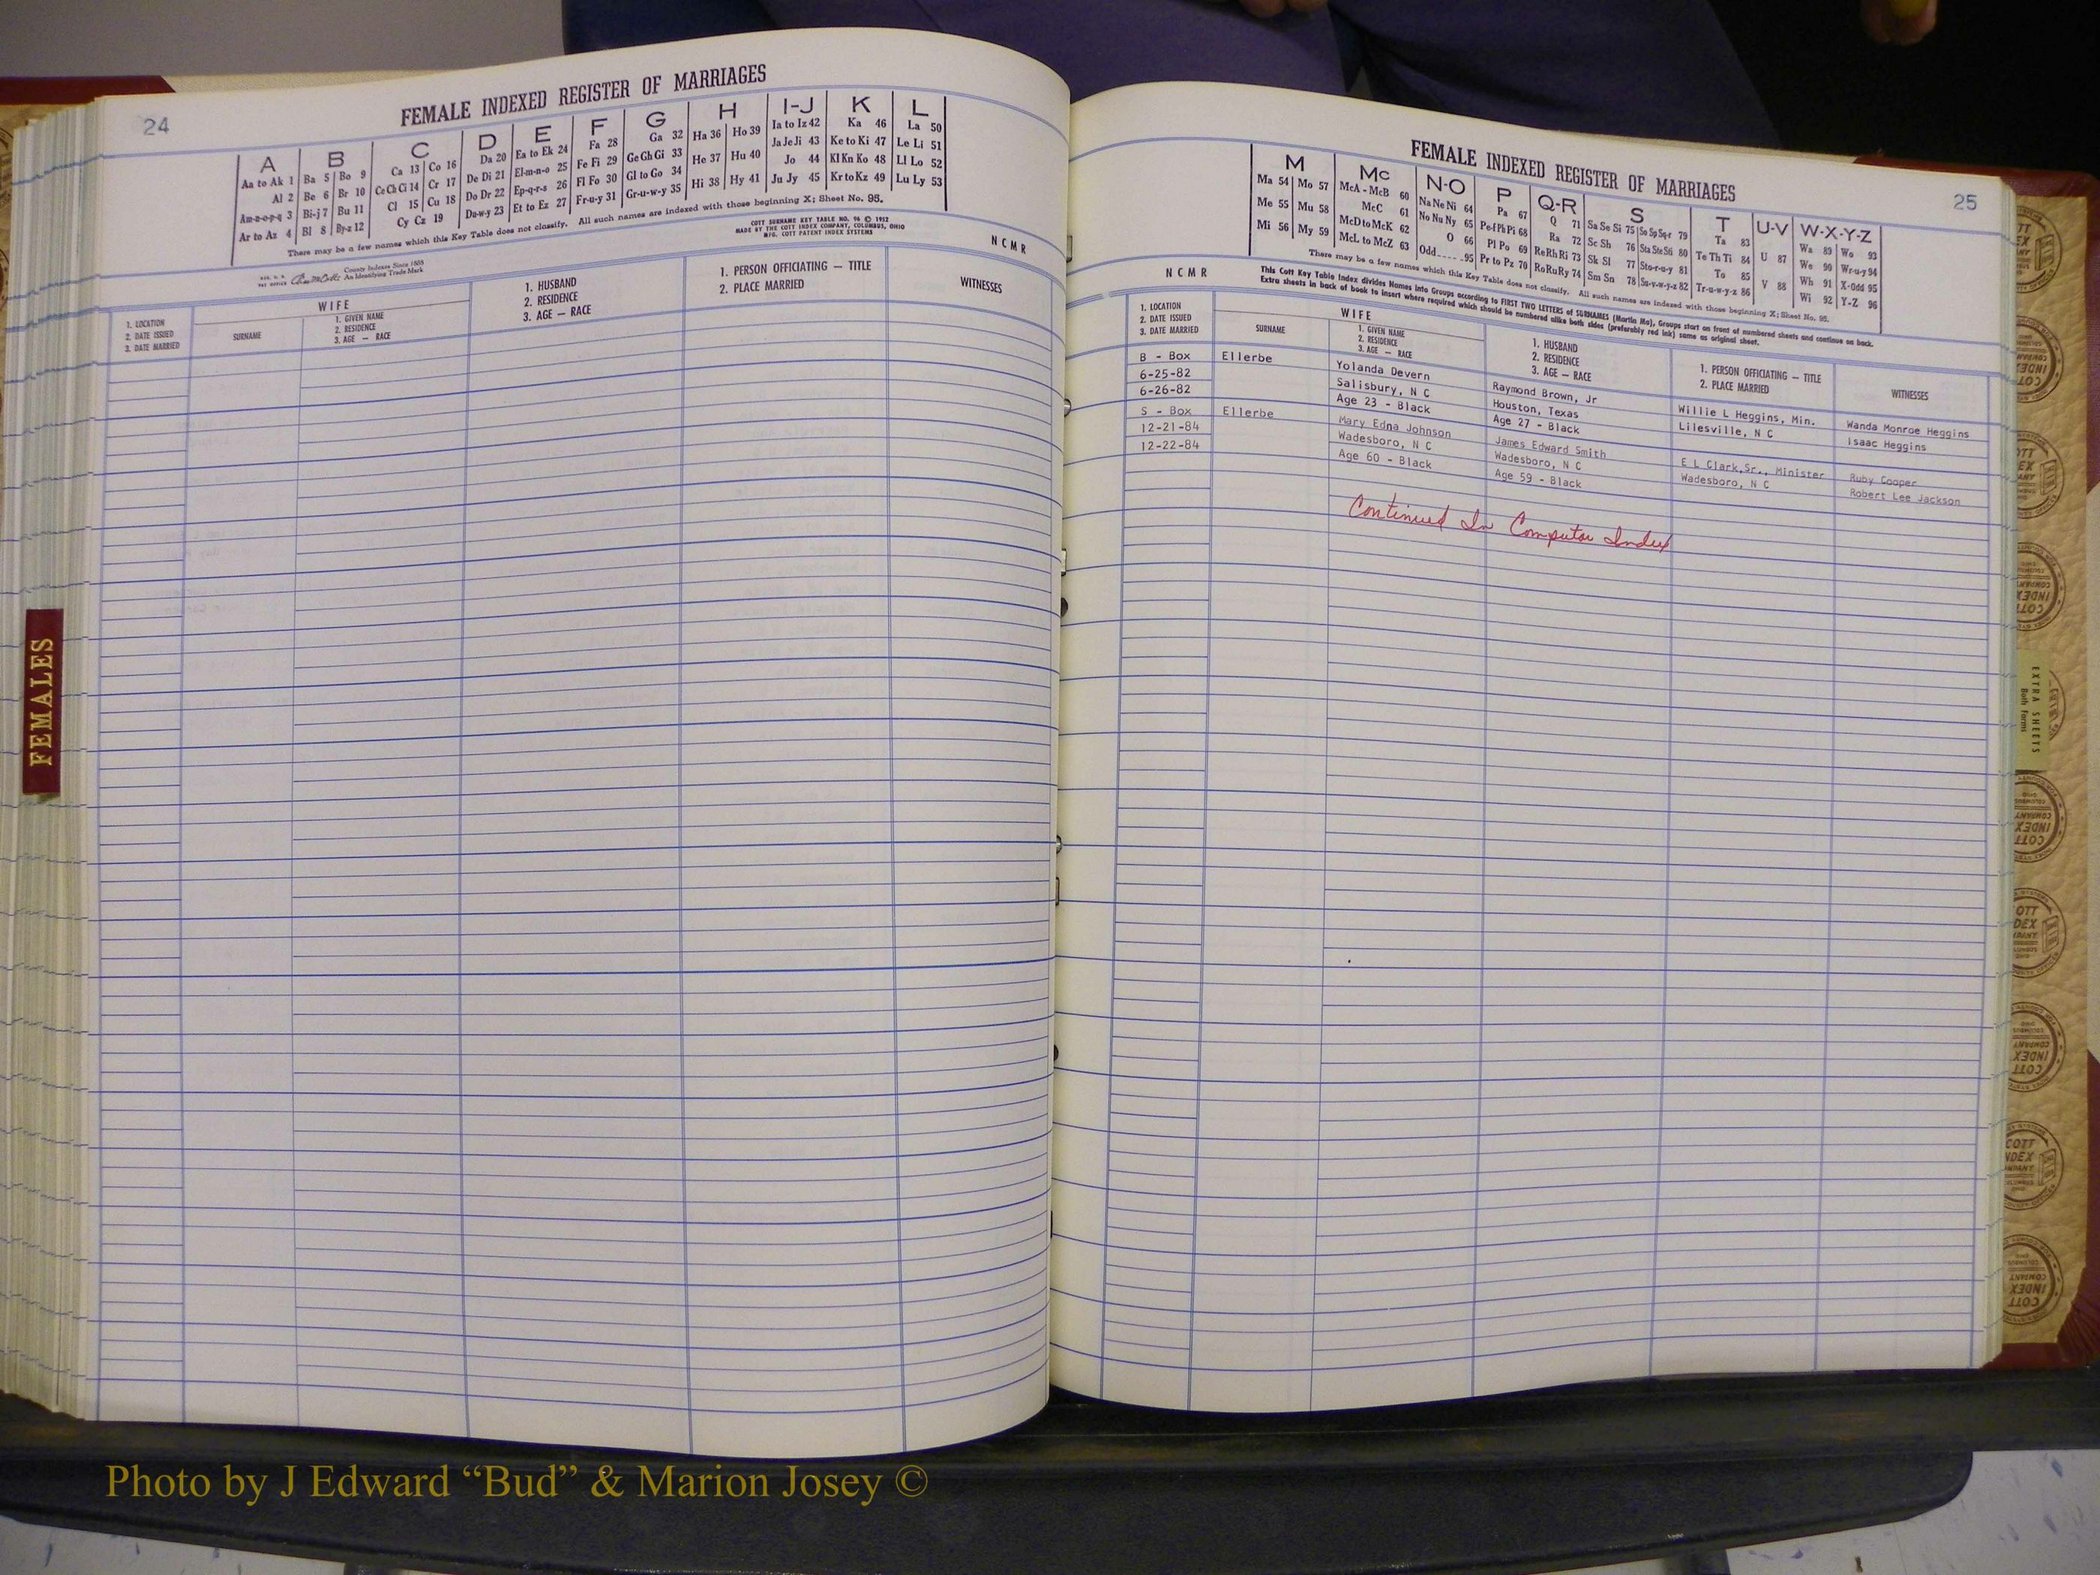 24
FEMALE INDEXED REGISTER OF MARRIAGES
A B C D E F G H I-J K L
Aa to Ak 1 Ba 5 Bo 9 Ca 13 Co 16 Da 20 Ea to Ek 24 Fa 28 Ga 32 Ha 36 Ho 39 Ia to Iz 42 Ka 46 La 50
Al 2 Be 6 Br 10 Ce Ch Ci 14 Cr 17 De Di 21 El-m-n-o 25 Fe Fi 29 Ge Gh Gi 33 He 37 Hu 40 Ja Je Ji 43 Ke to Ki 47 Le Li 51
Am-n-o-p-q 3 Bi-j 7 Bu 11 Cl 15 Cu 18 Do Dr 22 Ep-q-r-s 26 Fl Fo 30 Gl to Go 34 Hi 38 Hy 41 Jo 44 Kl Kn Ko 48 Ll Lo 52
Ar to Az 4 Bl 8 By-z 12 Cy Cz 19 Du-w-y 23 Et to Ez 27 Fr-u-y 31 Gr-u-w-y 35 Ju Jy 45 Kr to Kz 49 Lu Ly 53
There may be a few names which this Key Table does not classify. All such names are indexed with those beginning X; Sheet No. 95.
COTT SURNAME KEY TABLE NO. 96 © 1952
MADE BY THE COTT INDEX COMPANY, COLUMBUS, OHIO
MFG. COTT PATENT INDEX SYSTEMS
REG. U. S.
PAT OFFICE
County Indexes Since 1888
An Identifying Trade Mark
N C M R
1. LOCATION
2. DATE ISSUED
3. DATE MARRIED
WIFE
SURNAME
1. GIVEN NAME
2. RESIDENCE
3. AGE — RACE
1. HUSBAND
2. RESIDENCE
3. AGE — RACE
1. PERSON OFFICIATING — TITLE
2. PLACE MARRIED
WITNESSES
FEMALES
25
FEMALE INDEXED REGISTER OF MARRIAGES
M Mc N-O P Q-R S T U-V W-X-Y-Z
Ma 54 Mo 57 McA - McB 60 Na Ne Ni 64 Pa 67 Q 71 Sa Se Si 75 So Sp Sq-r 79 Ta 83 U 87 Wa 89 Wo 93
Me 55 Mu 58 McC 61 No Nu Ny 65 Pe-f Ph Pi 68 Ra 72 Sc Sh 76 Sta Ste Sti 80 Te Th Ti 84 V 88 We 90 Wr-u-y 94
Mi 56 My 59 McD to McK 62 O 66 Pl Po 69 Re Rh Ri 73 Sk Sl 77 Sto-r-u-y 81 To 85 Wh 91 X-Odd 95
McL to McZ 63 Odd 95 Pr to Pz 70 Ro Ru Ry 74 Sm Sn 78 Su-v-w-y-z 82 Tr-u-w-y-z 86 Wi 92 Y-Z 96
There may be a few names which this Key Table does not classify. All such names are indexed with those beginning X; Sheet No. 95.
N C M R
This Cott Key Table Index divides Names into Groups according to FIRST TWO LETTERS of SURNAMES (Martin Ma), Groups start on front of numbered sheets and continue on back.
Extra sheets in back of book to insert where required which should be numbered alike both sides (preferably red ink) same as original sheet.
1. LOCATION
2. DATE ISSUED
3. DATE MARRIED
WIFE
SURNAME
1. GIVEN NAME
2. RESIDENCE
3. AGE — RACE
1. HUSBAND
2. RESIDENCE
3. AGE — RACE
1. PERSON OFFICIATING — TITLE
2. PLACE MARRIED
WITNESSES
B - Box Ellerbe Yolanda Devern Raymond Brown, Jr Willie L Heggins, Min. Wanda Monroe Heggins
6-25-82 Salisbury, N C Houston, Texas Lilesville, N C Isaac Heggins
6-26-82 Age 23 - Black Age 27 - Black
S - Box Ellerbe Mary Edna Johnson James Edward Smith E L Clark,Sr., Minister Ruby Cooper
12-21-84 Wadesboro, N C Wadesboro, N C Wadesboro, N C Robert Lee Jackson
12-22-84 Age 60 - Black Age 59 - Black
Continued In Computor Index
EXTRA SHEETS
Both Forms
COTT
INDEX
COMPANY
COLUMBUS
OHIO
Photo by J Edward “Bud” & Marion Josey ©